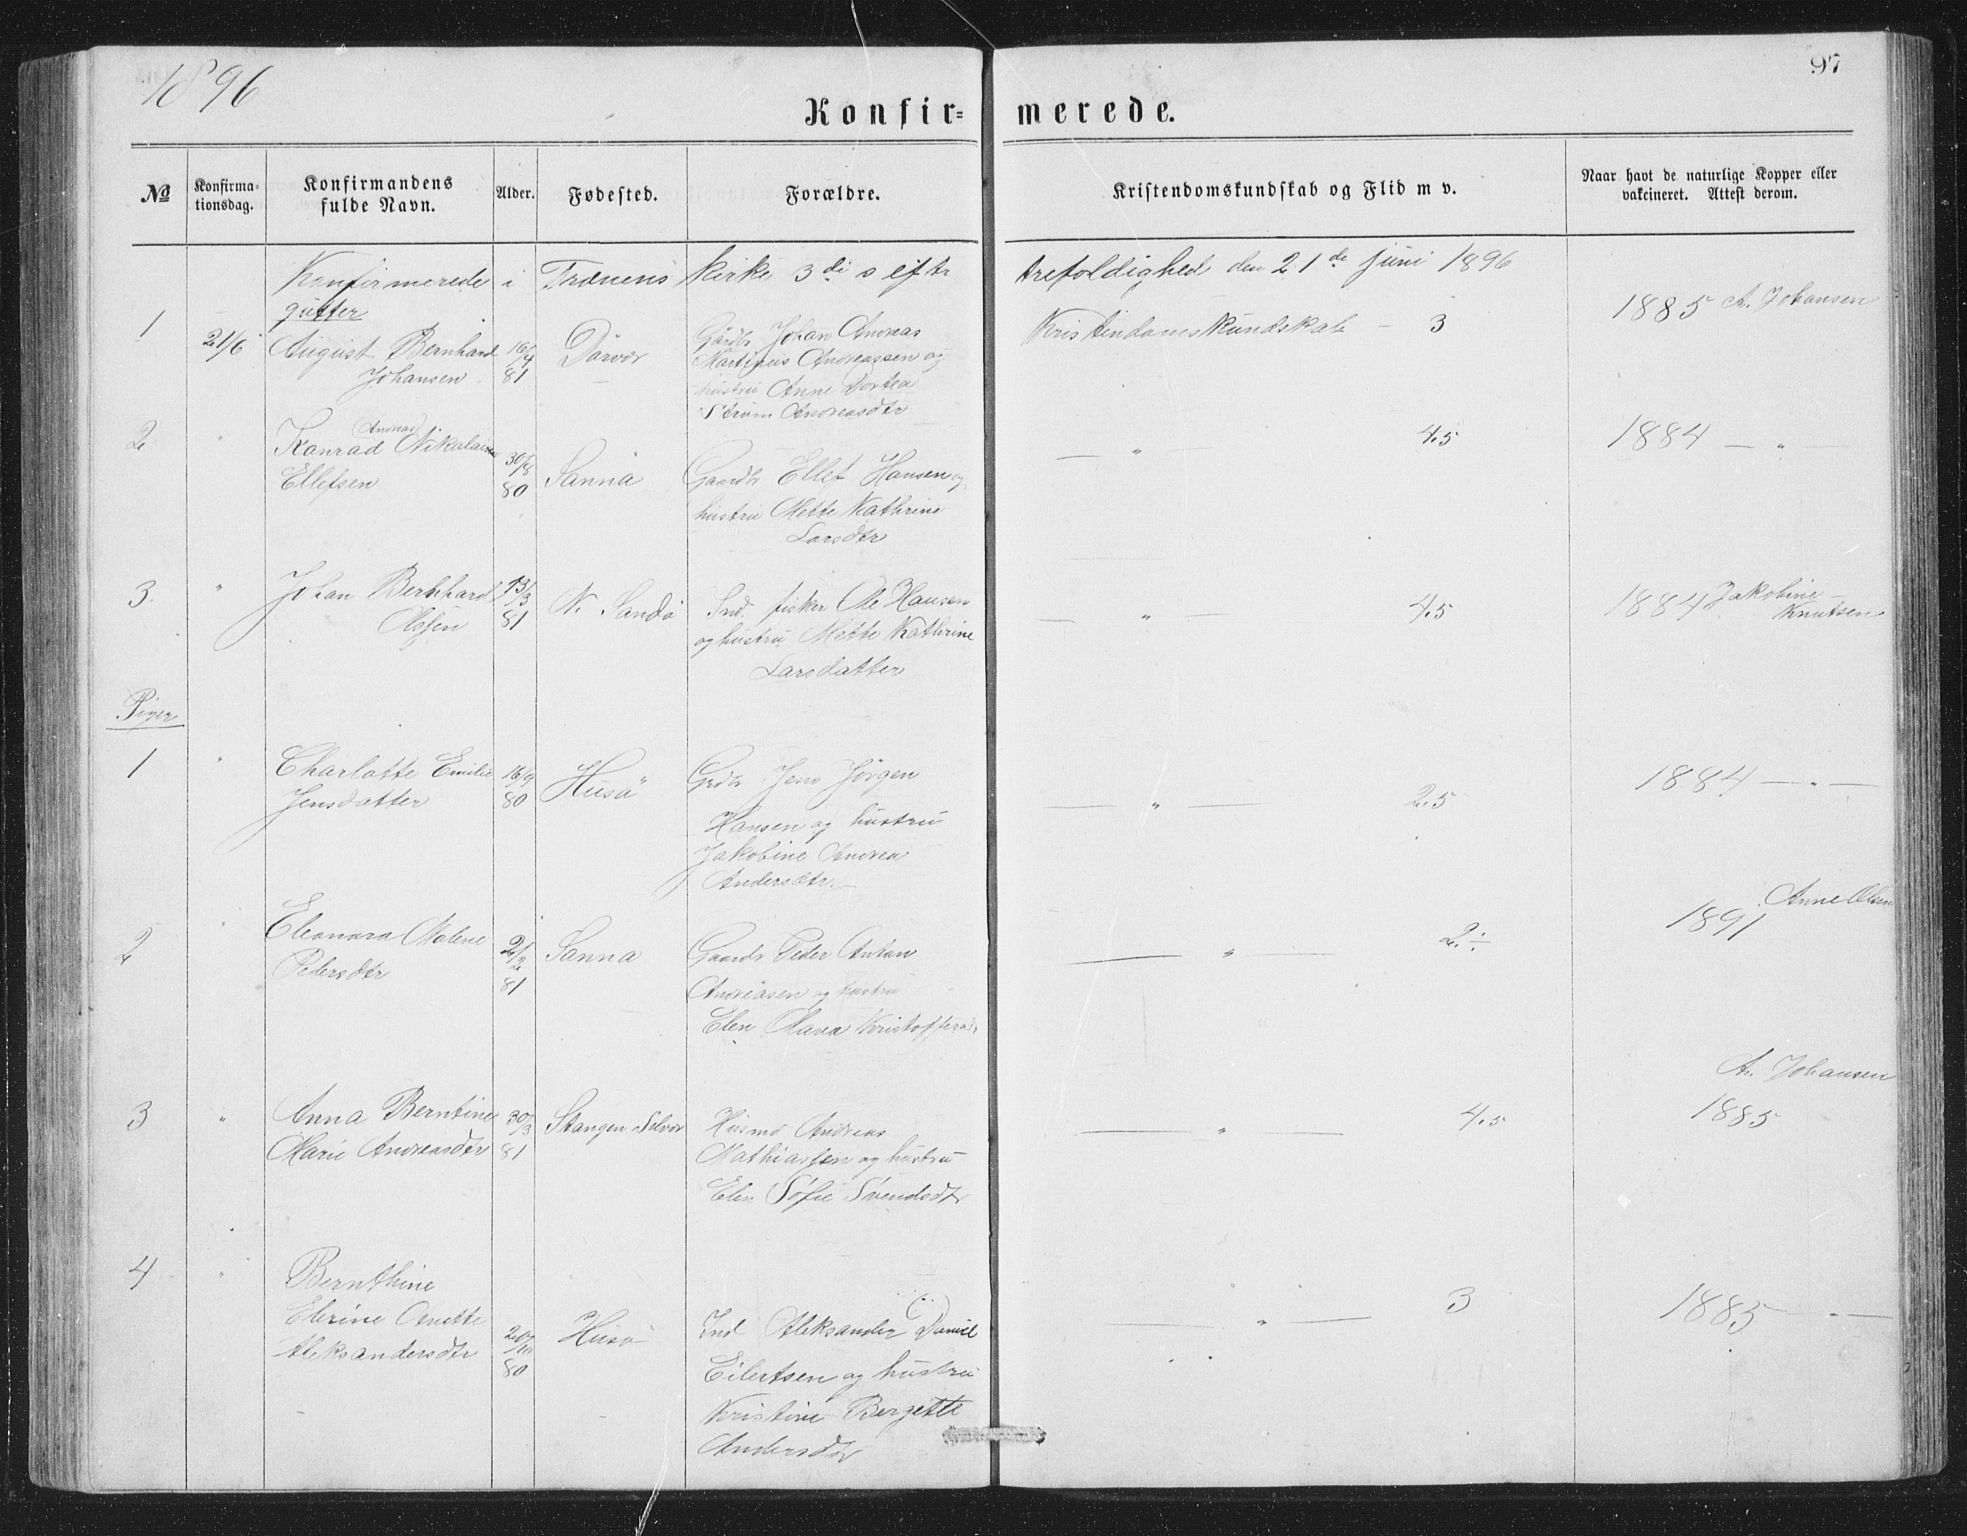 1896
97
Konfir= merede.
№
Konfirma-
tionsdag.
Konfirmandens
fulde Navn.
Alder.
Fødested.
Forældre.
Kristendomskundskab og Flid m v.
Naar havt de naturlige Kopper eller
vakcineret. Attest derom.
Konfirmerede i Trænens kirke 3di s eftr trefoldighed den 21de juni 1896
gutter
1
21/6
August Bernhard
Johansen
16/4
81
Dørvær
Gårdbr Johan Andreas
Martinus Andreassen og
hustru Anne Dortea
Strøm Andreasdtr
Kristendomskundskab - 3
1885 A. Johansen
2
"
Andreas
Konrad Nikolaisen
Ellefsen
30/8
80
Sanna
Gaardbr Ellef Hansen og
hustru Mette Kathrine
Larsdtr
— " — 4.5
1884 — " —
3.
"
Johan Bernhard
Olesen
13/3
81
N. Sandø
Ind. fisker Ole Hansen
og hustru Mette Kathrine
Larsdatter
— " — 4.5
1884 Jakobine
Knutsen
Piger
1
"
Charlotte Emilie
Jensdatter
16/9
80
Husø
Grdbr Jens Jørgen
Hansen og hustru
Jakobine Andrea
Andersdtr
— " — 2.5
1884 — " —
2
"
Eleonora Malene
Petersdtr
2/2
81
Sanna
Gaardbr Peder Anton
Andreasen og hustru
Elen Maria Kristoffersdtr
— " — 2.÷
Anne Olsen
1891
3
"
Anna Berntine
Marie Andreasdtr
30/3
81
Stangen Selvær
Husmd Andreas
Mathiassen og hustru
Elen Sofie Svendsdtr
— " — 4.5
A. Johansen
1885
4
"
Bernthine
Elerine Anette
Aleksandersdtr
20/10
80
Husø
Ind Aleksander Daniel
Eilertsen og hustru
Kristine Bergette
Andersdtr
— " — 3
1885 — " —